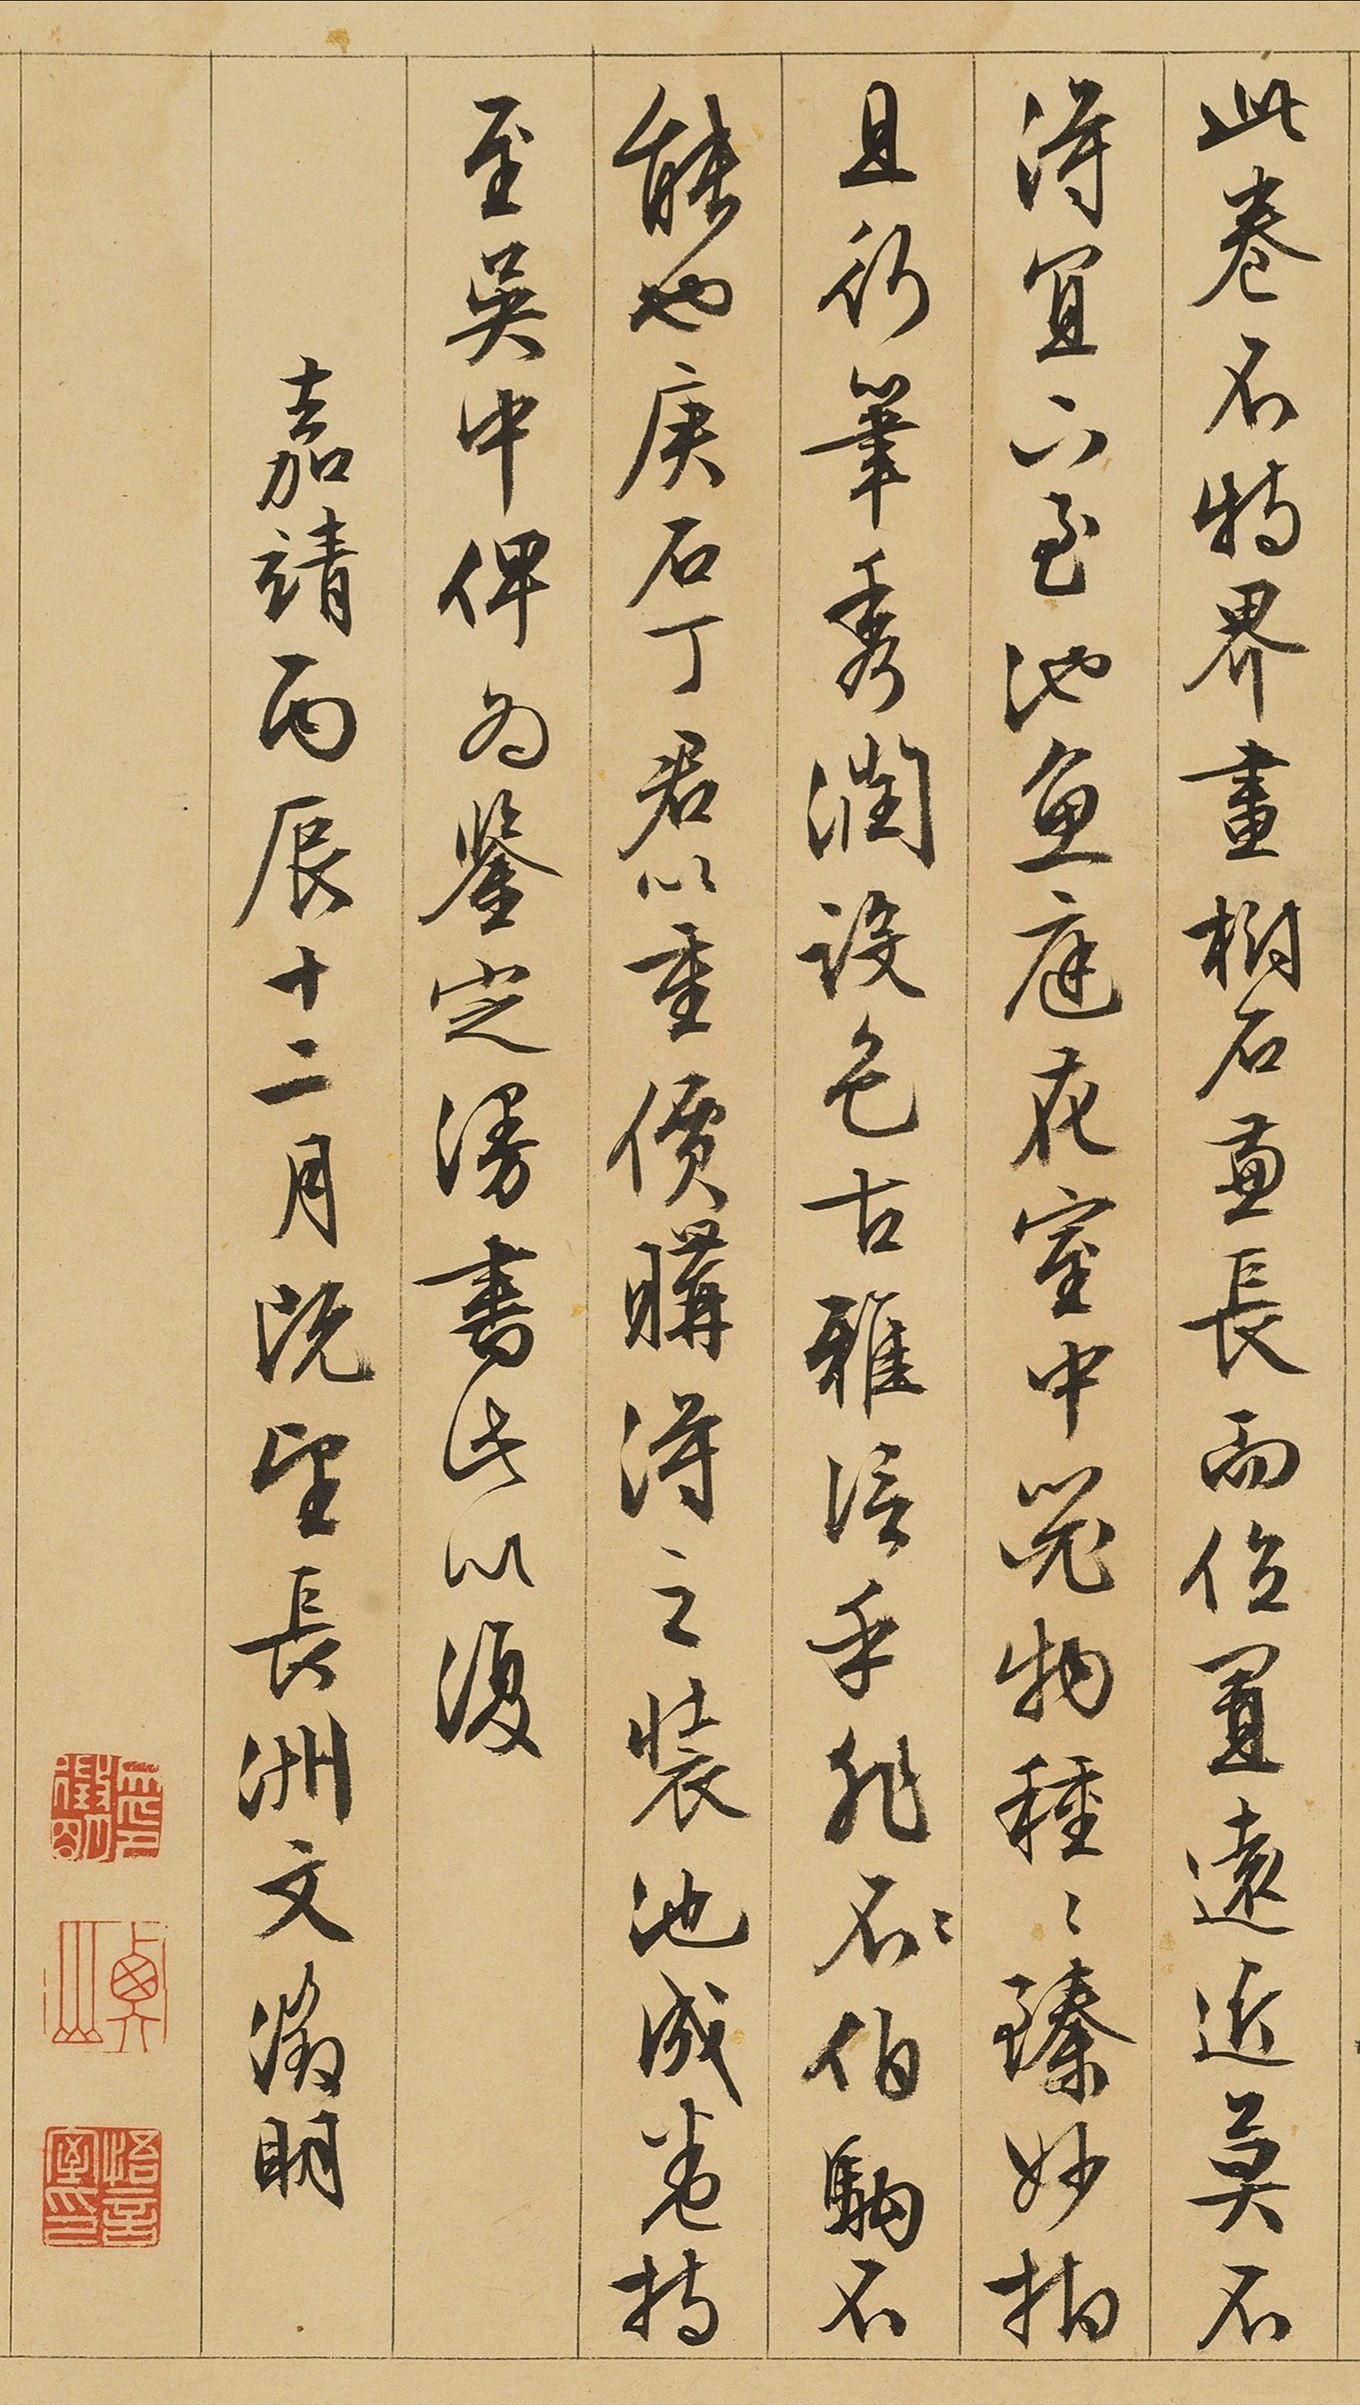 此卷不特界畫樹石兼長而位置遠近莫不
得宜下至池魚庭花室中器物種〻臻妙抑
且行筆秀潤設色古雅信乎非不〻伯駒不
能也庚石丁君以重價購得之裝池成卷持
至吳中俾為鑒定漫書此以復
嘉靖丙辰十二月既望長洲文徵明
悟言室印